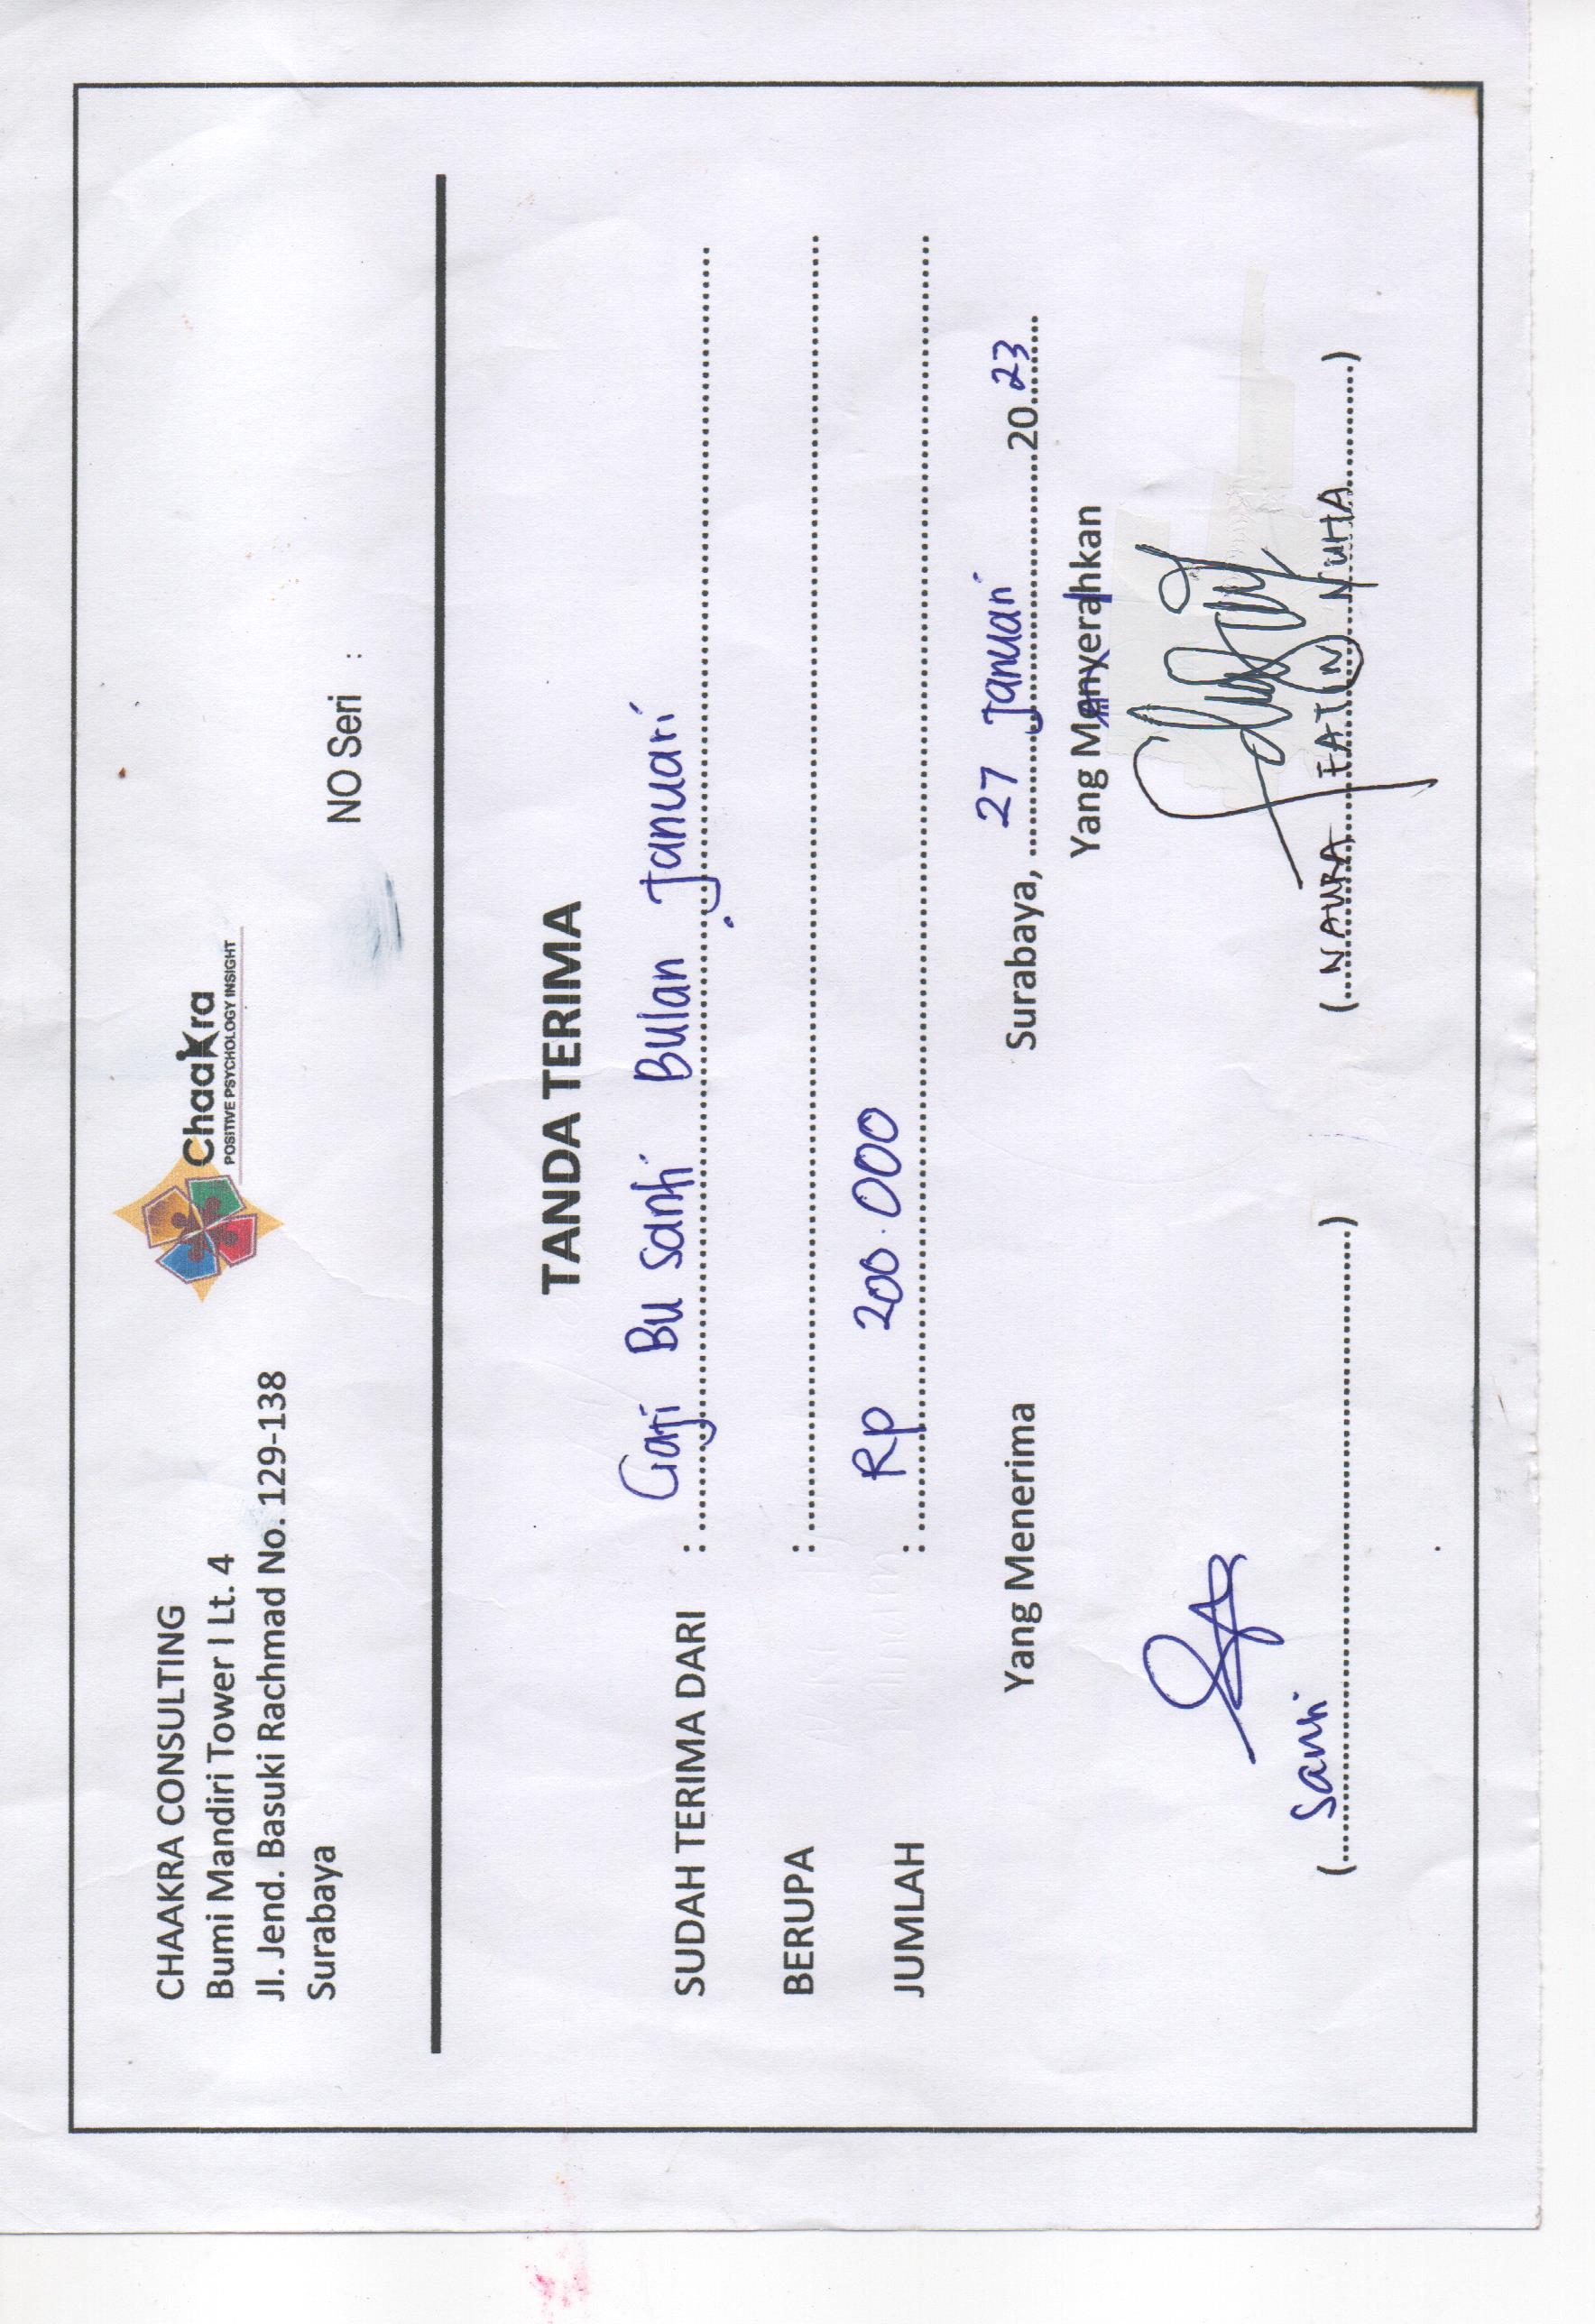 CHAAKRA CONSULTING
Bumi Mandiri Tower I Lt. 4
Jl. Jend. Basuki Rachmad No. 129-138
Surabaya
Chaakra
POSITIVE PSYCHOLOGY INSIGHT
NO Seri :
TANDA TERIMA
SUDAH TERIMA DARI : Gaji Bu Santi Bulan Januari
BERUPA :
JUMLAH : Rp 200.000
Yang Menerima
Surabaya, 27 Januari 2023
Yang Menyerahkan
(Santi)
(NAURA FATIN NUHA)